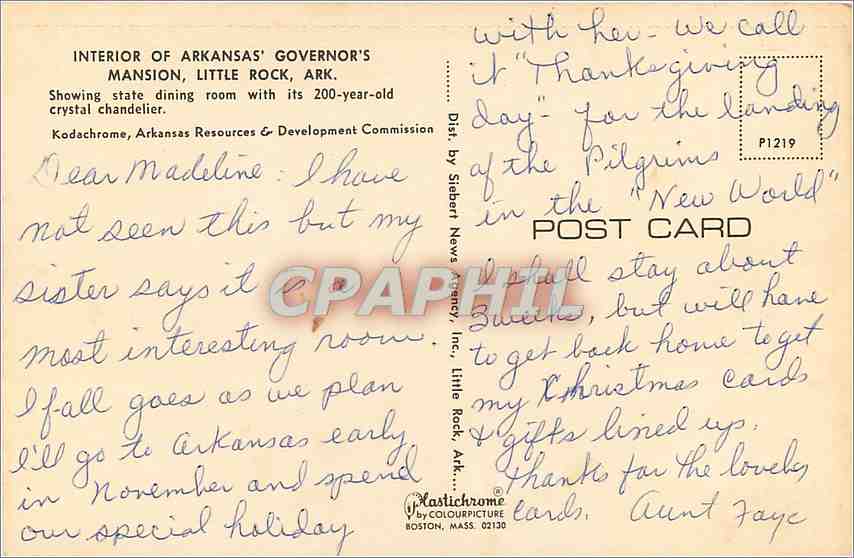 INTERIOR OF ARKANSAS' GOVERNOR'S
MANSION, LITTLE ROCK, ARK.
Showing state dining room with its 200-year-old
crystal chandelier.
Kodachrome, Arkansas Resources & Development Commission
Dear Madeline: I have
not seen this but my
sister says it is a
most interesting room.
If all goes as we plan
I'll go to Arkansas early
in November and spend
our special holiday
with her - we call
it "Thanksgiving
day" - for the landing
of the Pilgrims
in the "New World"
I shall stay about
3 weeks, but will have
to get back home to get
my Christmas cards
& gifts lined up.
Thanks for the lovely
cards. Aunt Faye
P1219
POST CARD
Dist. by Siebert News Agency, Inc., Little Rock, Ark....
Plastichrome ®
by COLOURPICTURE
BOSTON, MASS. 02130
CPAPHIL